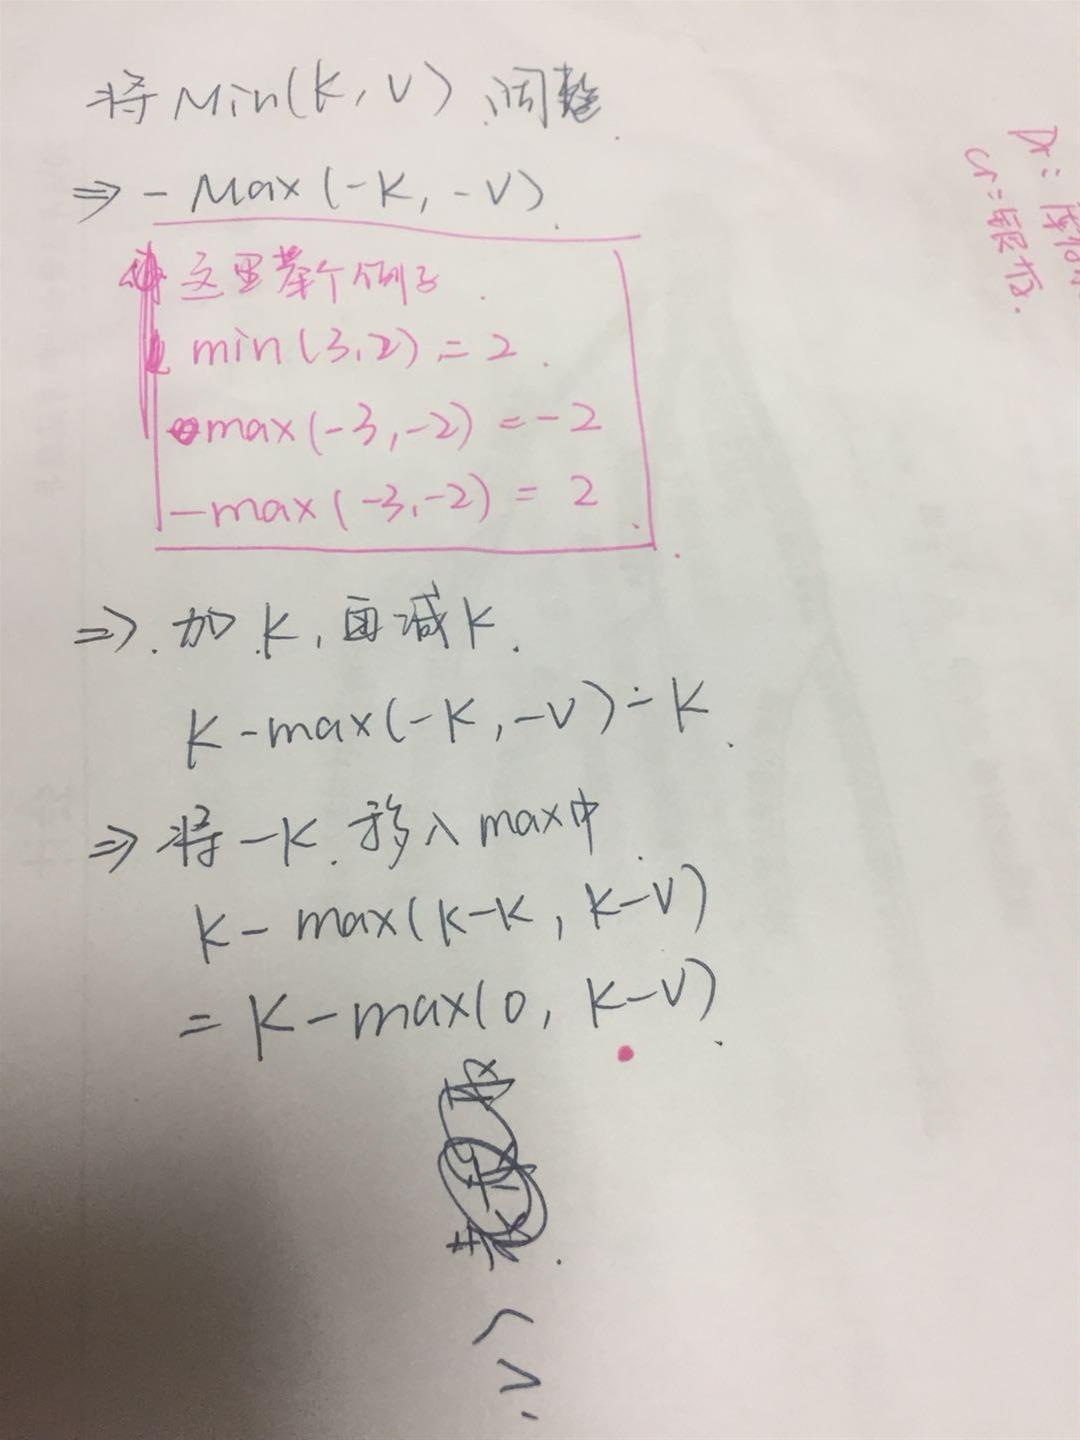 将Min(K,V)调整.
⇒ -Max(-K,-V).
这里举个例子.
min(3,2)=2.
max(-3,-2)=-2
-max(-3,-2)=2.
⇒. 加K,再减K.
K-max(-K,-V)-K.
⇒ 将-K.移入max中.
K-max(K-K,K-V)
=K-max(0,K-V).
Dr:
Cr:银行.